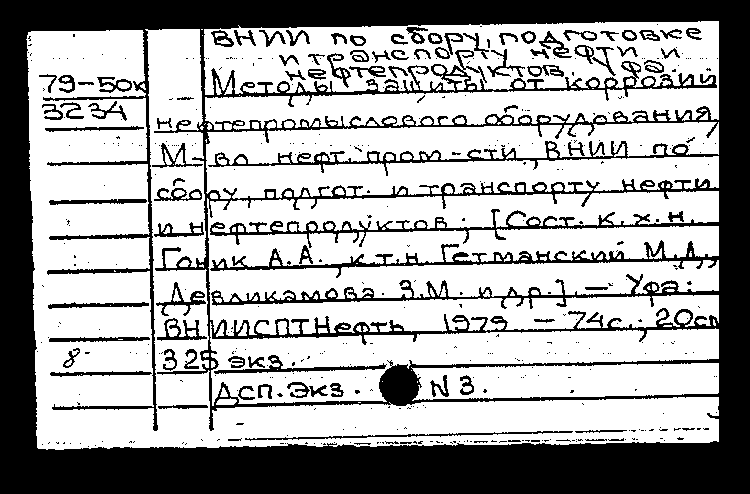 ВНИИ по сбору, подготовке
и транспорту нефти и
нефтепродуктов. Уфа.
79-50к Методы защиты от коррозий
3234
нефтепромыслового оборудования
М-во нефт. пром-сти, ВНИИ по
сбору, подгот. и транспорту нефти
и нефтепродуктов; [Сост. к.х.н.
Гоник А.А., к.т.н. Гетманский М.Д.,
Девликамова З.М. и др.] - Уфа:
ВНИИСПТНефть, 1979 - 74с.; 20см
8- 325 экз.
Дсп. Экз. N3.